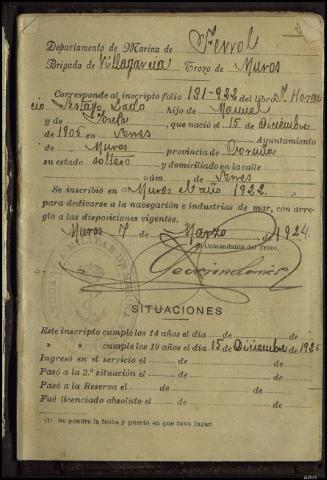 Departamento de Marina de Ferrol
Brigada de Villagarcia Trozo de Muros
Corresponde al inscripto folio 131-922 del libro
cio Lado hijo de Manuel
y de Josefa, que nació el 15 de Diciembre
de 1906 en Ayuntamiento
de Muros provincia de Coruña
su estado soltero y domiciliado en la calle
núm. de
Se inscribió en (1) Muros el año 1922.
para dedicarse a la navegación e industrias de mar, con arre-
glo a las disposiciones vigentes.
Muros 7 de Marzo de 1924.
El Comandante del Trozo,
SITUACIONES
Este inscripto cumple los 14 años el día de de
» » cumple los 19 años el día 15 de Diciembre de 1925
Ingresó en el servicio el de de
Pasó a la 2.ª situación el de de
Pasó a la Reserva el de de
Fué licenciado absoluto el de de
(1) Se pondrá la fecha y puerto en que tuvo lugar.